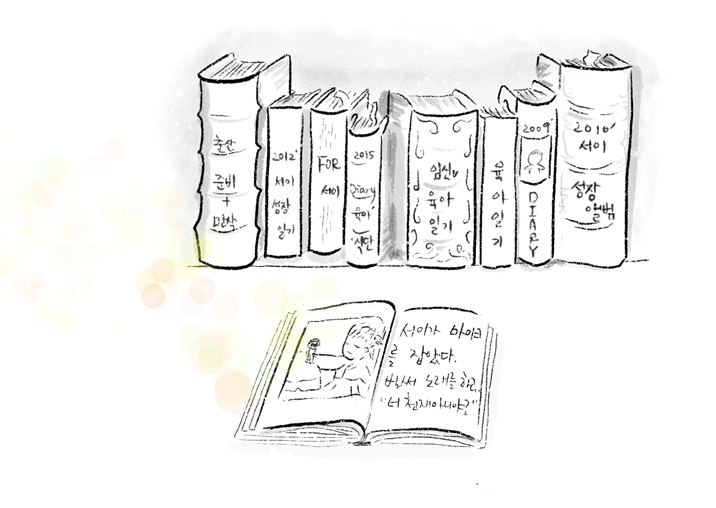 출산
준비
+
만삭
2012'
서이
성장
일기
FOR
서이
2015
Diary
육아'
식단
임신
육아
일기
육
아
일
기
2009
DIARY
2010'
서이
성장
앨범
서이가 마이크
를 잡았다.
벌써 노래를 하고,
"너 천재아니야?"